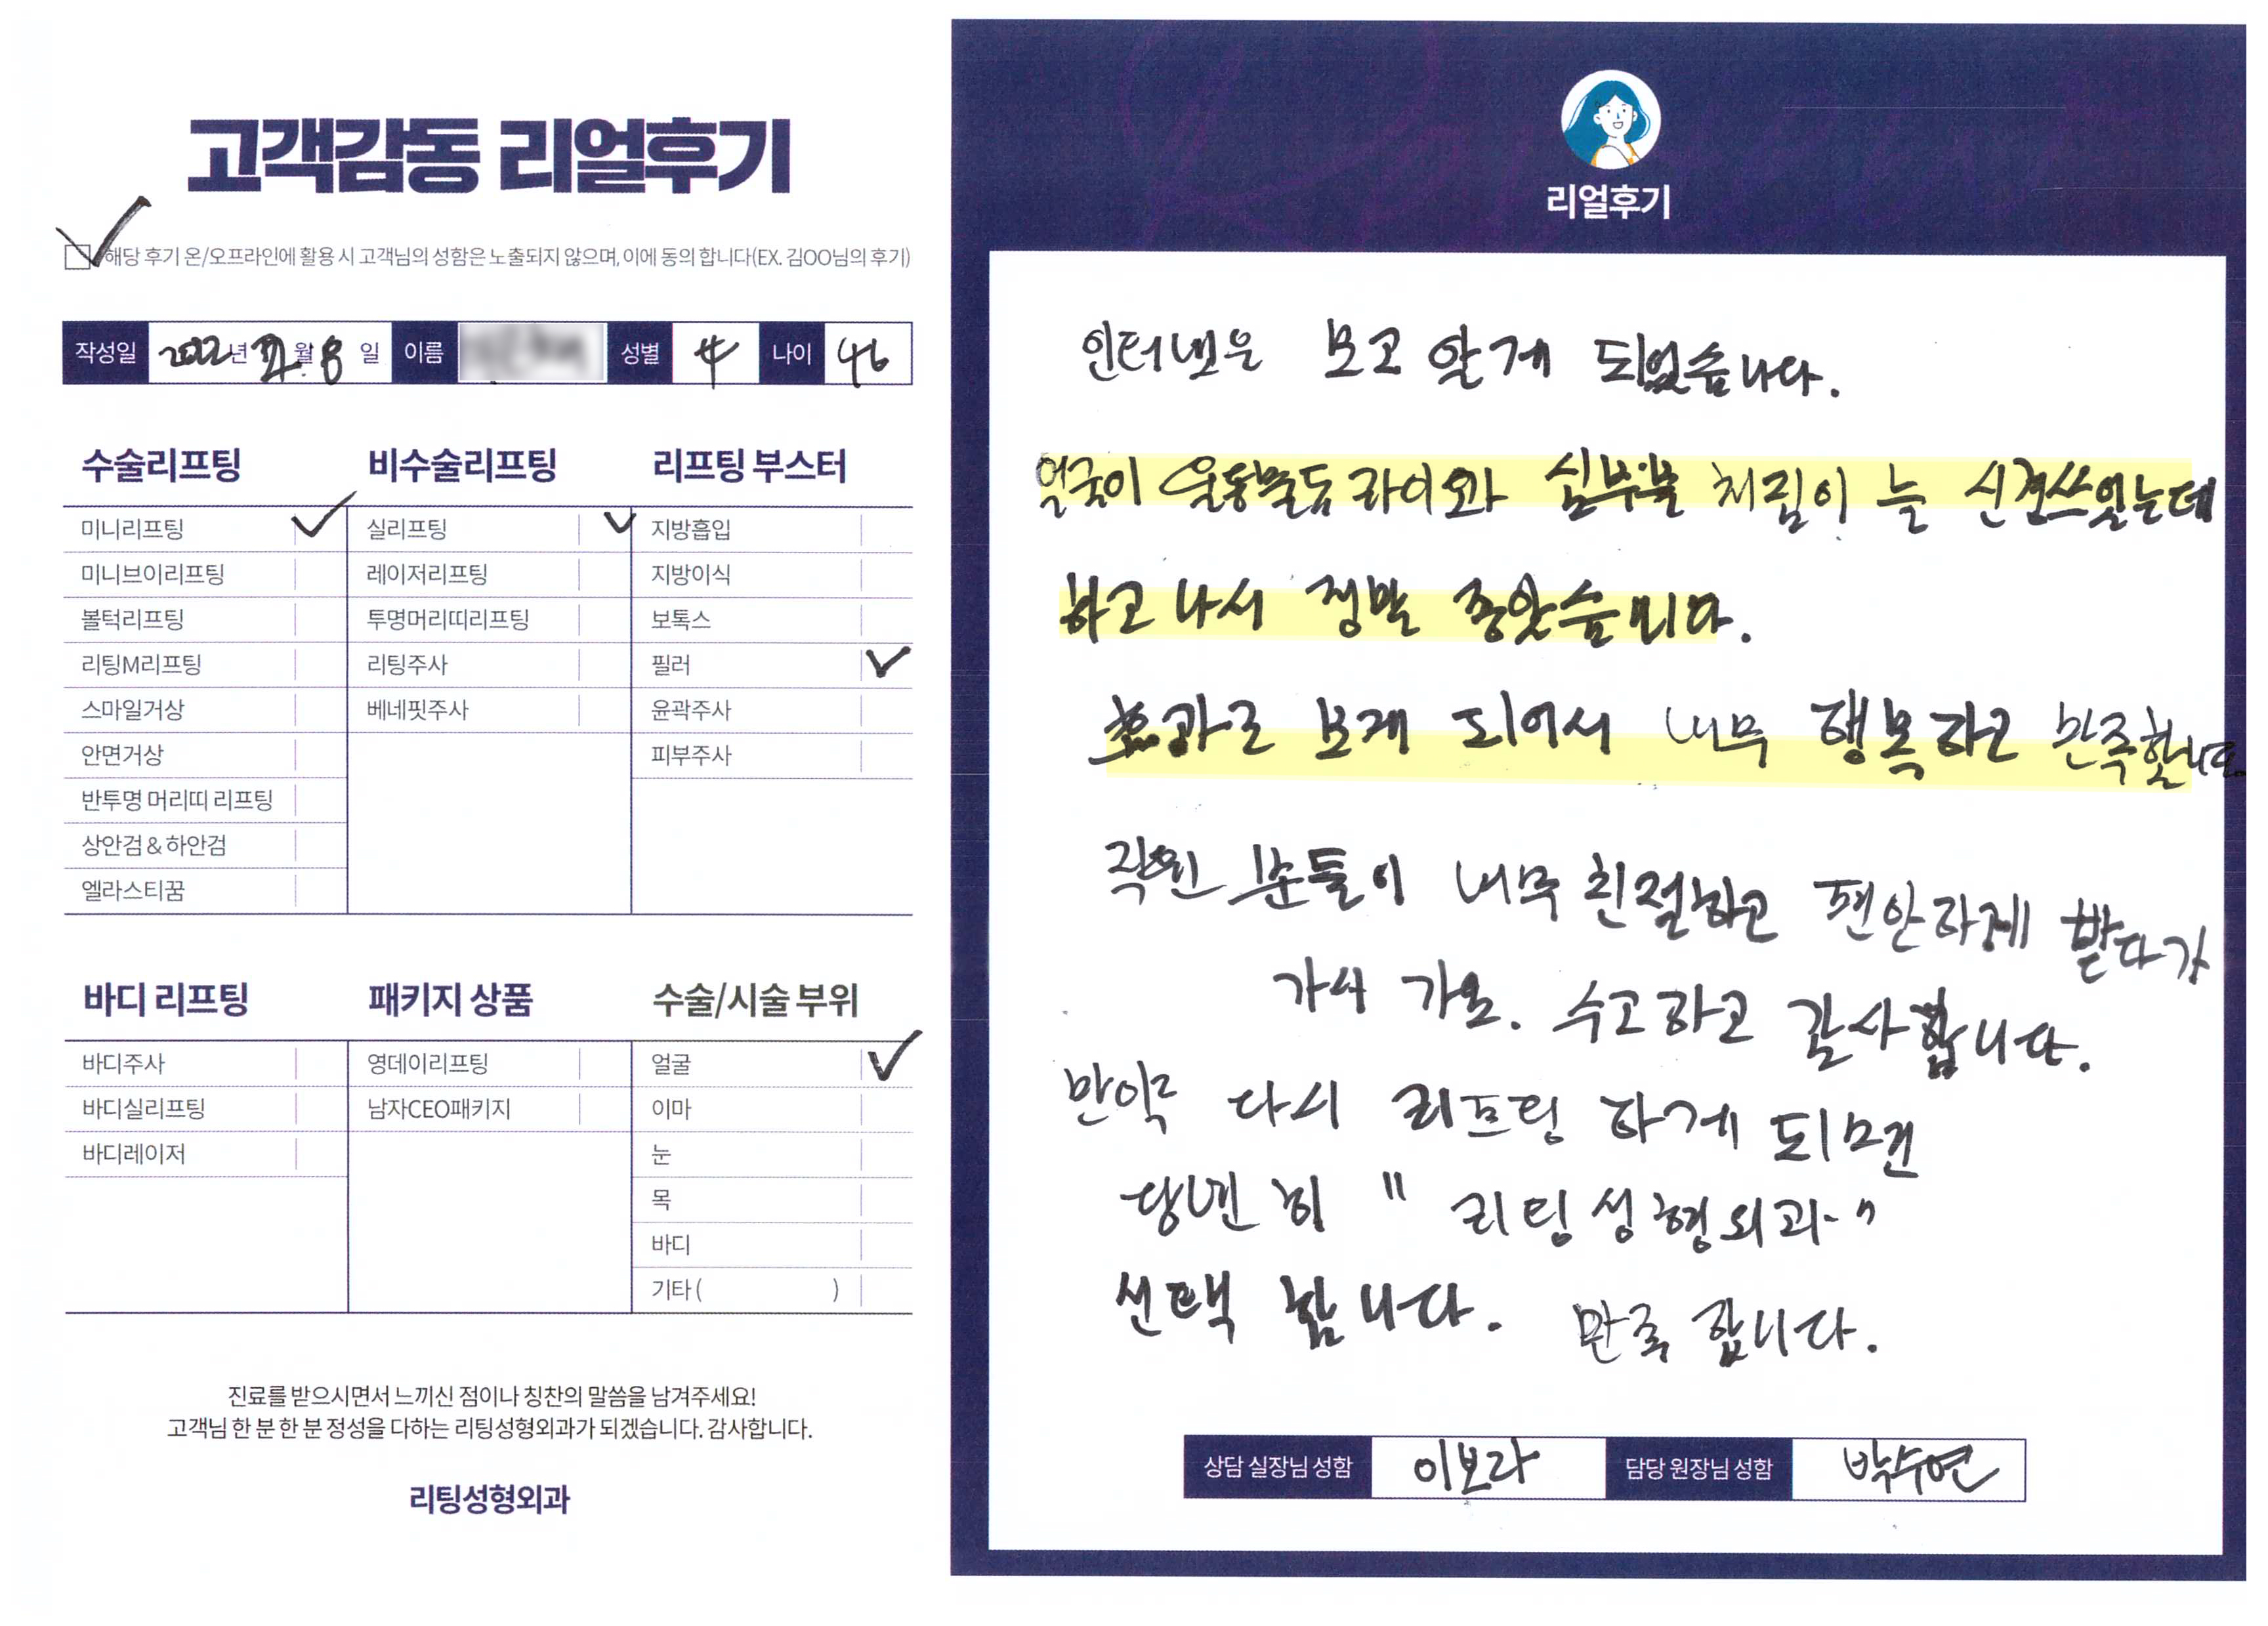 고객감동 리얼후기
해당 후기 온/오프라인에 활용 시 고객님의 성함은 노출되지 않으며, 이에 동의 합니다(EX. 김OO님의 후기)
작성일 2022년 월 8일 이름 성별 나이 46
수술리프팅
미니리프팅
미니브이리프팅
볼턱리프팅
리팅M리프팅
스마일거상
안면거상
반투명 머리띠 리프팅
상안검 & 하안검
엘라스티꿈
비수술리프팅
실리프팅
레이저리프팅
투명머리띠리프팅
리팅주사
베네핏주사
리프팅 부스터
지방흡입
지방이식
보톡스
필러
윤곽주사
피부주사
바디 리프팅
바디주사
바디실리프팅
바디레이저
패키지 상품
영데이리프팅
남자CEO패키지
수술/시술 부위
얼굴
이마
눈
목
바디
기타 ( )
진료를 받으시면서 느끼신 점이나 칭찬의 말씀을 남겨주세요!
고객님 한 분 한 분 정성을 다하는 리팅성형외과가 되겠습니다. 감사합니다.
리팅성형외과
리얼후기
인터넷은 보고 알게 되었습니다.
얼굴이 처짐이 늘 신경쓰였는데
하고 나서 정말 좋았습니다.
효과를 보게 되어서 너무 행복하고 만족합니다.
직원 분들이 너무 친절하고 편안하게 받다가
가서 가요. 수고하고 감사합니다.
만약 다시 리프팅 하게 되면
당연히 " 리팅성형외과 "
선택 합니다. 만족 합니다.
상담 실장님 성함 이보라 담당 원장님 성함 박수연